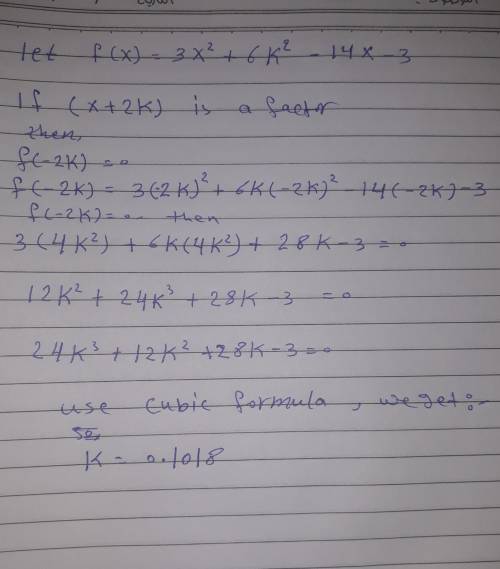 let f(x) = 3x² + 6k² - 14x - 3
If (x+2k) is a factor
then,
f(-2k) = 0
f(-2k) = 3(-2k)² + 6k(-2k)² - 14(-2k) - 3
f(-2k) = 0 then
3(4k²) + 6k(4k²) + 28k - 3 = 0
12k² + 24k³ + 28k - 3 = 0
24k³ + 12k² + 28k - 3 = 0
use cubic formula, we get:-
so,
k = 0.1018